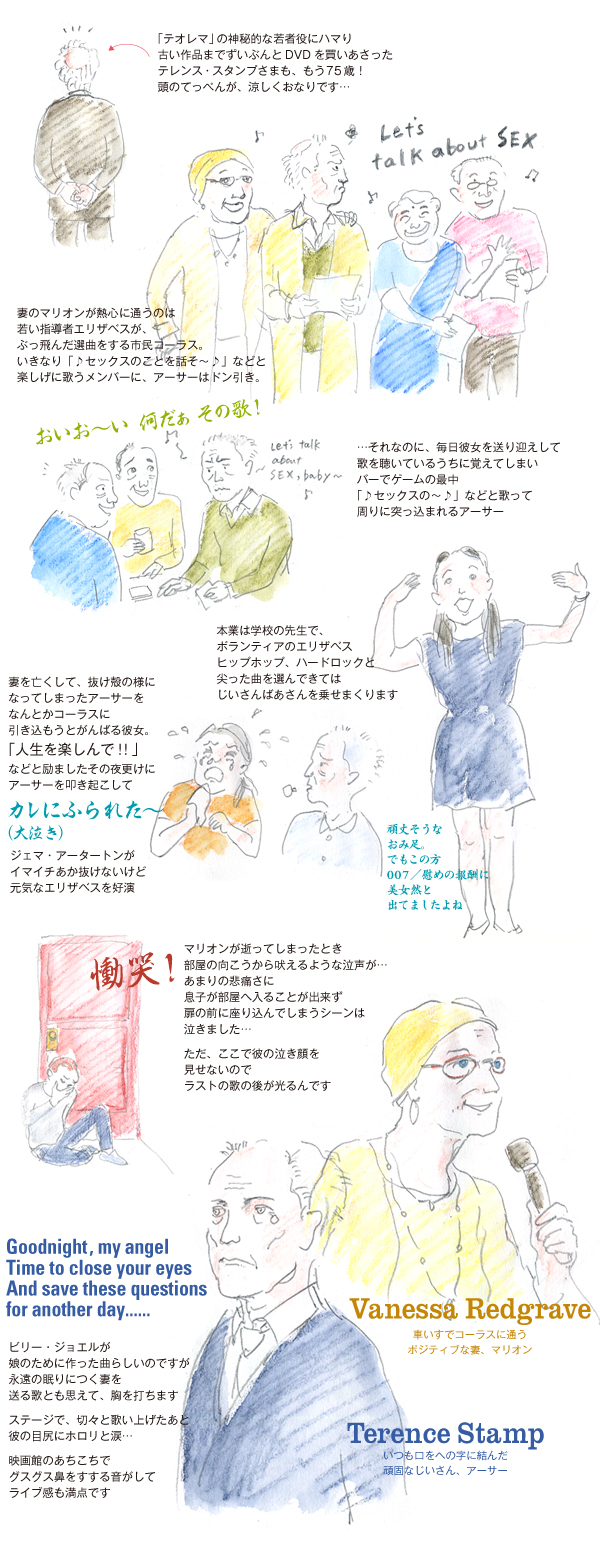 「テオレマ」の神秘的な若者役にハマり
古い作品までずいぶんとDVDを買いあさった
テレンス・スタンプさまも、もう75歳！
頭のてっぺんが、涼しくおなりです…
Let's
talk about SEX
妻のマリオンが熱心に通うのは
若い指導者エリザベスが、
ぶっ飛んだ選曲をする市民コーラス。
いきなり「♪セックスのことを話そ〜♪」などと
楽しげに歌うメンバーに、アーサーはドン引き。
おいお〜い 何だぁ その歌！
Let's talk
about
SEX, baby〜
…それなのに、毎日彼女を送り迎えして
歌を聴いているうちに覚えてしまい
バーでゲームの最中
「♪セックスの〜♪」などと歌って
周りに突っ込まれるアーサー
本業は学校の先生で、
ボランティアのエリザベス
ヒップホップ、ハードロックと
尖った曲を選んできては
じいさんばあさんを乗せまくります
妻を亡くして、抜け殻の様に
なってしまったアーサーを
なんとかコーラスに
引き込もうとがんばる彼女。
「人生を楽しんで!!」
などと励ましたその夜更けに
アーサーを叩き起こして
カレにふられた〜
(大泣き)
ジェマ・アータートンが
イマイチあか抜けないけど
元気なエリザベスを好演
頑丈そうな
おみ足。
でもこの方
007／慰めの報酬に
美女然と
出てましたよね
慟哭！
マリオンが逝ってしまったとき
部屋の向こうから吠えるような泣声が…
あまりの悲痛さに
息子が部屋へ入ることが出来ず
扉の前に座り込んでしまうシーンは
泣きました…
ただ、ここで彼の泣き顔を
見せないので
ラストの歌の後が光るんです
Goodnight, my angel
Time to close your eyes
And save these questions
for another day......
ビリー・ジョエルが
娘のために作った曲らしいのですが
永遠の眠りにつく妻を
送る歌とも思えて、胸を打ちます
ステージで、切々と歌い上げたあと
彼の目尻にホロリと涙…
映画館のあちこちで
グスグス鼻をすする音がして
ライブ感も満点です
Vanessa Redgrave
車いすでコーラスに通う
ポジティブな妻、マリオン
Terence Stamp
いつも口をへの字に結んだ
頑固なじいさん、アーサー